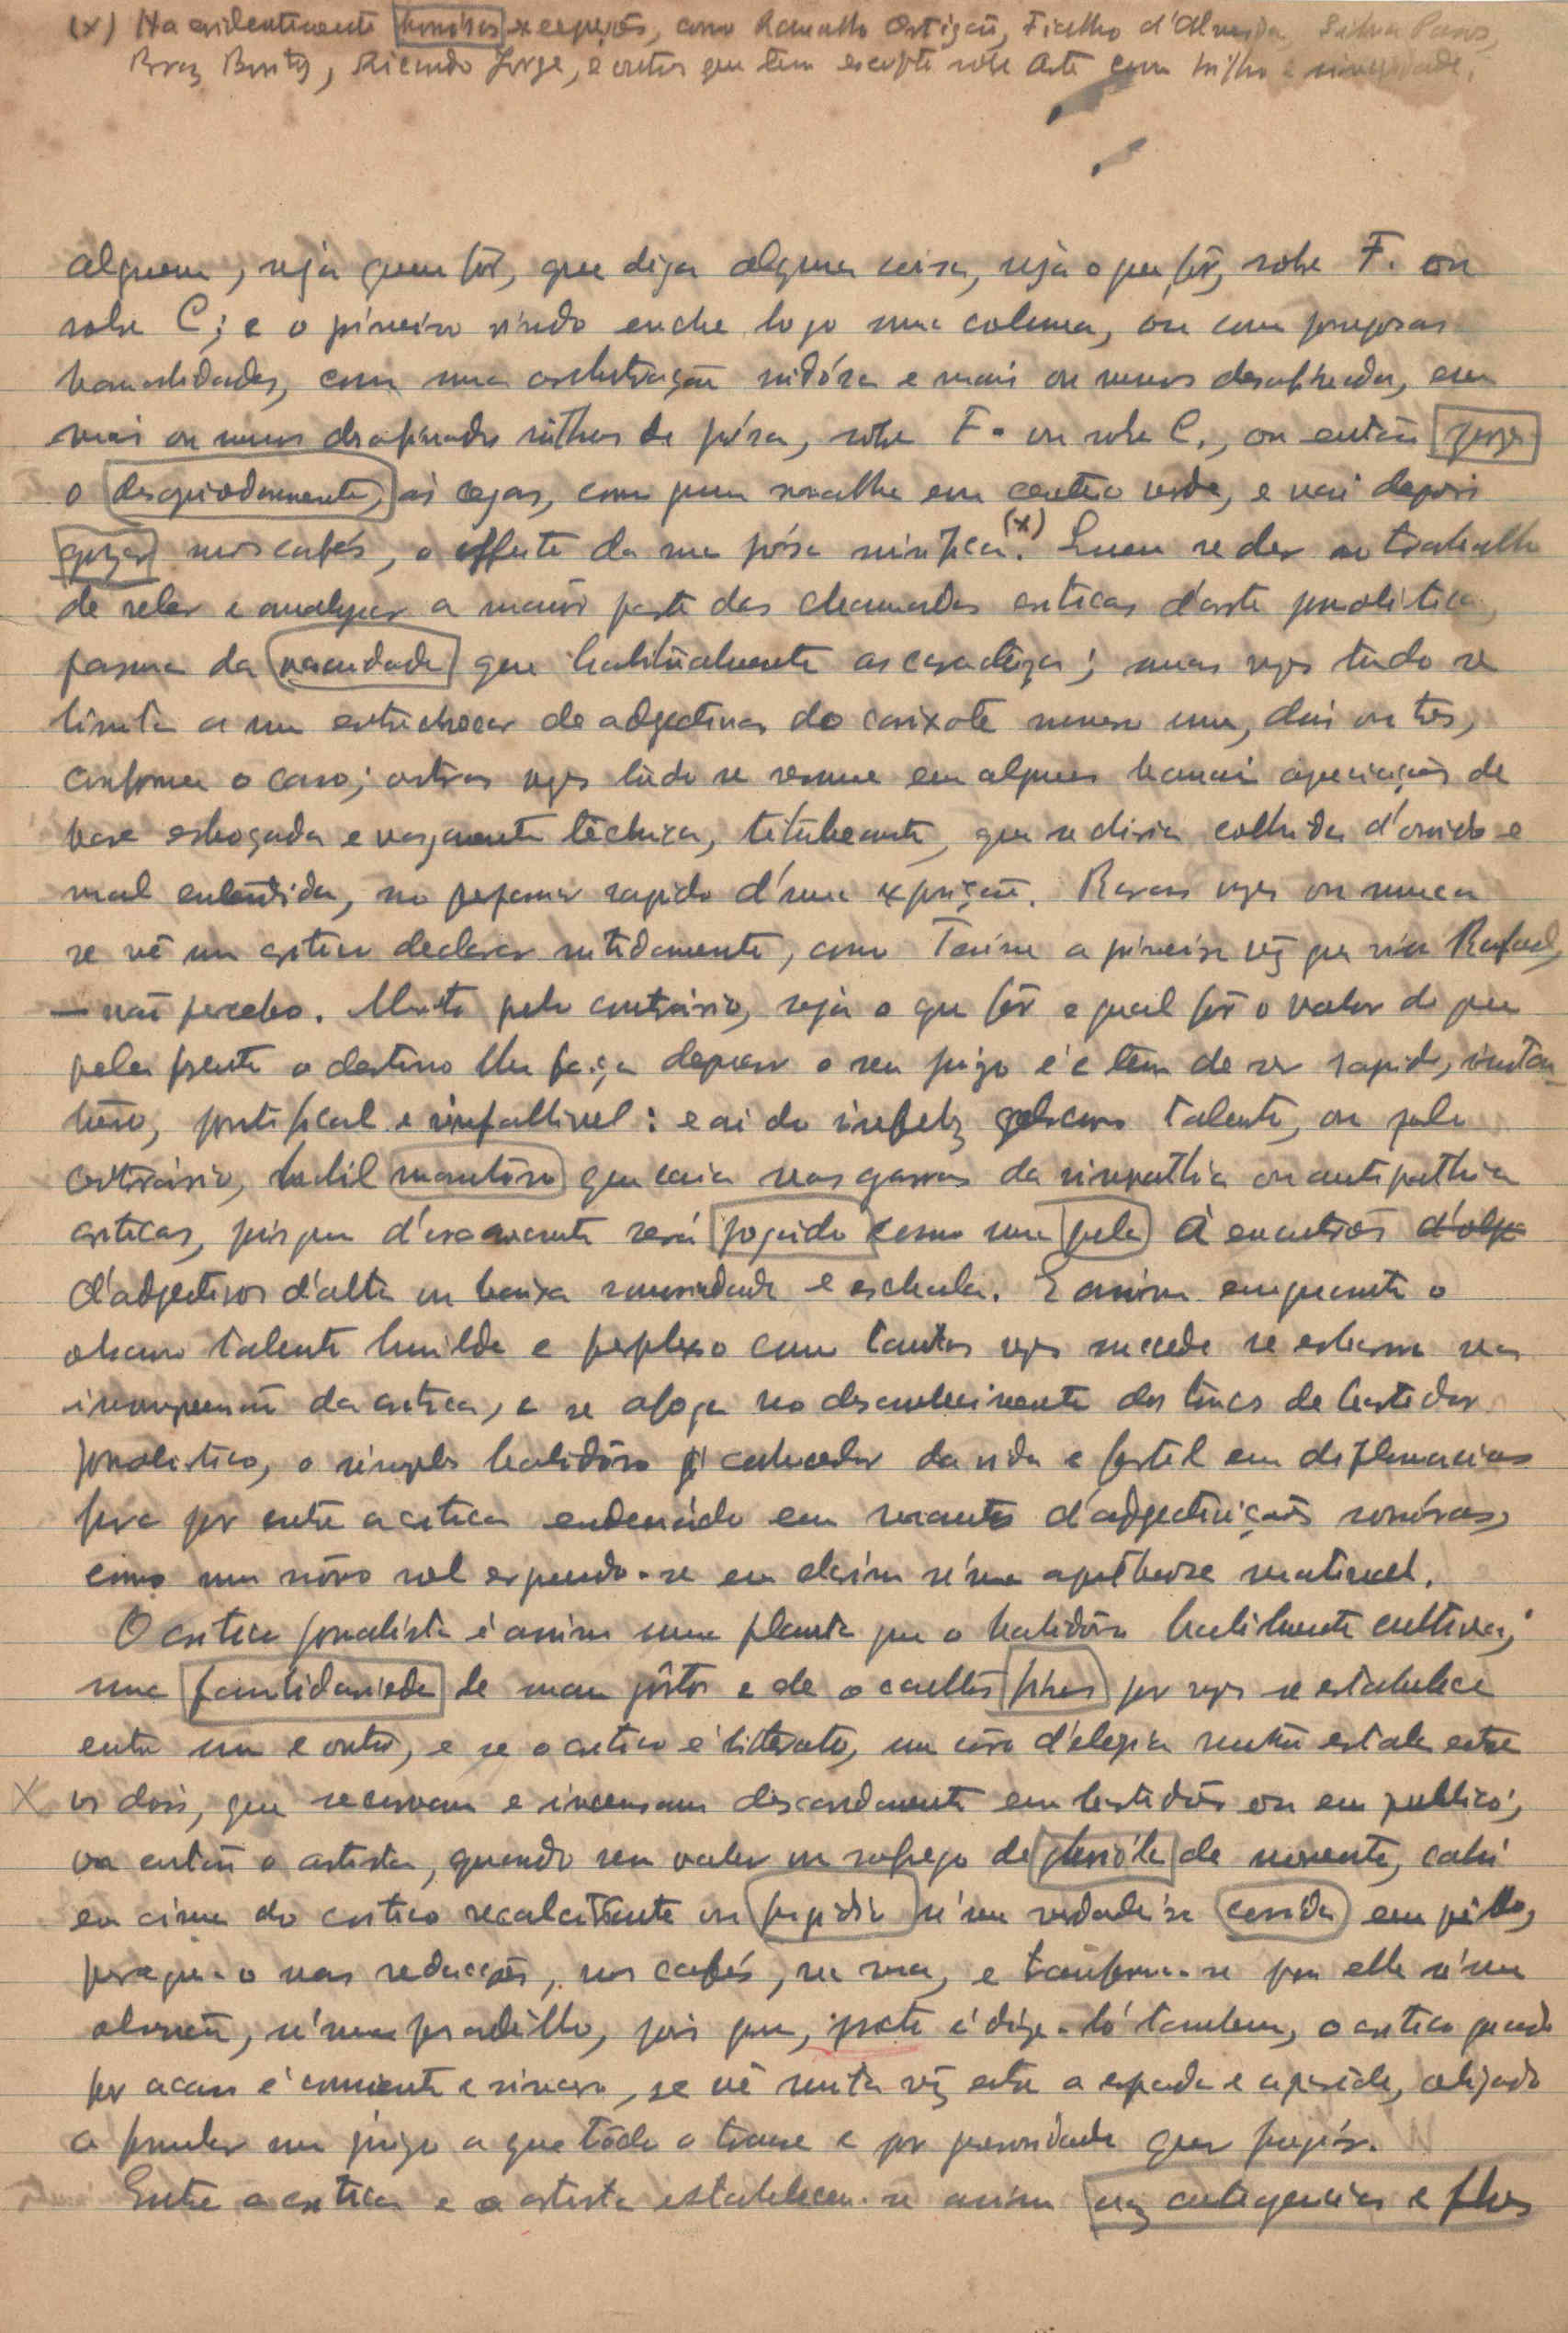 (x) Ha evidentemente honrosas excepções, como Ramalho Ortigão, Fialho d'Almeida, Silva Pinto,
Braz Burity, Ricardo Jorge, e outros que tem escripto sobre Arte com brilho e sinceridade.
alguem, seja quem fôr, que diga alguma coisa, seja o que fôr, sobre F. ou
sobre C; e o primeiro vindo enche logo uma columa, ou com pomposas
banalidades, com uma orchestração ruidósa e mais ou menos desafinada, em
mais ou menos desafinados rithmos de prósa, sobre F. ou sobre C., ou então
o desapiedadamente, ás cegas, como quem a navalha em centeio verde, e vai depois
gozar nos cafés, o effeito da sua prósa mirifica.(x) Quem se der ao trabalho
de reler e analysar a maior parte das chamadas criticas d'arte jornalistica
pasma da vacuidade que habitualmente as caracteriza; umas vezes tudo se
limita a um entrechocar de adjectivos do caixote numero um, dois ou tres,
conforme o caso; outras vezes tudo se resume em algumas banais apreciações de
base esboçada e vagamente téchnica, titubeante, que se diria colhida d'ouvido e
mal entendida, no perpassar rapido d'uma exposição. Raras vezes ou nunca
se vê um critico declarar nitidamente, como Taine a primeira vêz que viu Rafael,
— não percebo. Muito pelo contrário, seja o que fôr e qual fôr o valor do que
pela frente o destino lhe faça deparar o seu juizo é e tem de ser rapido, instan-
tâneo, pontifical e infallivel: e ai do infeliz obscuro talento, ou pelo
contrário, habil que caia nas garras da simpathia ou antipathia
criticas, pois que d'ora avante será jogado como uma pela á encontrões d'alg
d'adjectivos d'alta ou baixa sonoridade e eschala. E assim emquanto o
obscuro talento humilde e perplexo como tantas vezes succede se esbarra na
incompreensão da critica, e se afoga no desconhecimento dos trucs de bastidor
jornalistico, o simples habilidôso conhecedor da vida e fertil em diplomacias
fura por entre a critica endeusádo em mantos d'adjectivações sonóras,
como um nôvo sol erguendo-se em clarim n'uma apotheose matinal.
O critico jornalista é assim uma planta que o habilidôso habilmente cultiva;
uma familiaridade de mau gôsto e de occultos fins por vezes se estabelece
entre um e outro, e se o critico é litterato, um côro d'elogio mutuo estala entre
os dois, que se curvam e incensam descaradamente em bastidôres ou em publico;
ou então o artista, quando sem valor ou sofrego de de momento, cahi
em cima do critico recalcitrante ou fugidio n'uma verdadeira corrida em pêllo,
persegue-o nas redacções, nos cafés, na rua, e transforma-se para elle n'um
abcesso, n'um pesadêllo, pois que, justo é dizê-ló tambem, o critico quando
por acaso é consciente e sincero, se vê muita vêz entre a espada e a parêde, obrigado
a formular um juizo a que tôdo o transe e por generosidade quer fugir.
Entre a critica e o artista estabelecem-se assim